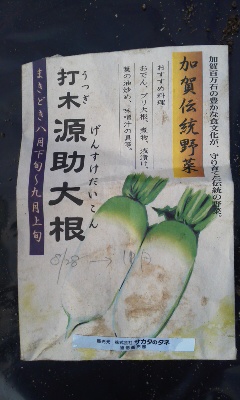 加賀百万石の豊かな食文化が、守り育てた伝統の野菜。
加賀伝統野菜
おすすめ料理
おでん、ブリ大根、煮物、浅漬け、
葉の油炒め、味噌汁の具等。
うつぎ げんすけだいこん
打木 源助大根
まきどき八月下旬〜九月上旬
8/28 →
販売元 株式会社 サカタのタネ